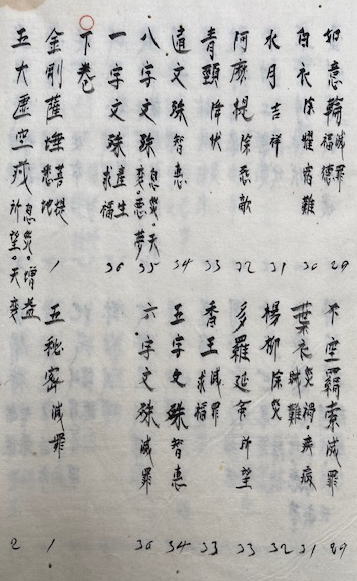 如意輪 滅罪 福德 29
不空羂索 滅罪 29
白衣 除耀宿難 30
葉衣 災禍・疾疫 賊難 31
水月 吉祥 31
楊柳 除災 32
阿麽提 除悪敵 32
多羅 延命 所望 33
青頸 降伏 33
香王 滅罪 求福 33
文殊 智恵 34
五字文殊 智恵 34
八字文殊 息災・天変・悪夢 35
六字文殊 滅罪 36
一字文殊 産生 求福 36
下巻
金剛薩埵 菩提 悉地 1
五秘密 滅罪 1
五大虚空蔵 息災・増益 所望・天変 2